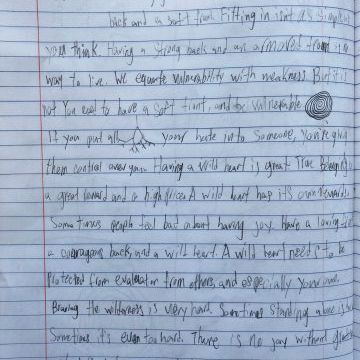 back and a soft front. Fitting in isn't as simple as
you think. Having a strong back and an armored front is no
way to live. We equate vulnerability with weakness But it is
not You need to have a soft front, and be vulnerable
If you put all your hate into someone, you're giving
them control over you. Having a wild heart is great True belonging
a great reward and a high price. A wild heart has its own rewards.
Sometimes people feel bad about having joy. Have a loving
a courageous back, and a wild heart. A wild heart needs to be
protected from evaluation from others, and especially your own.
Braving the wilderness is very hard. Sometimes standing alone is
Sometimes it's even too hard. There is no joy without